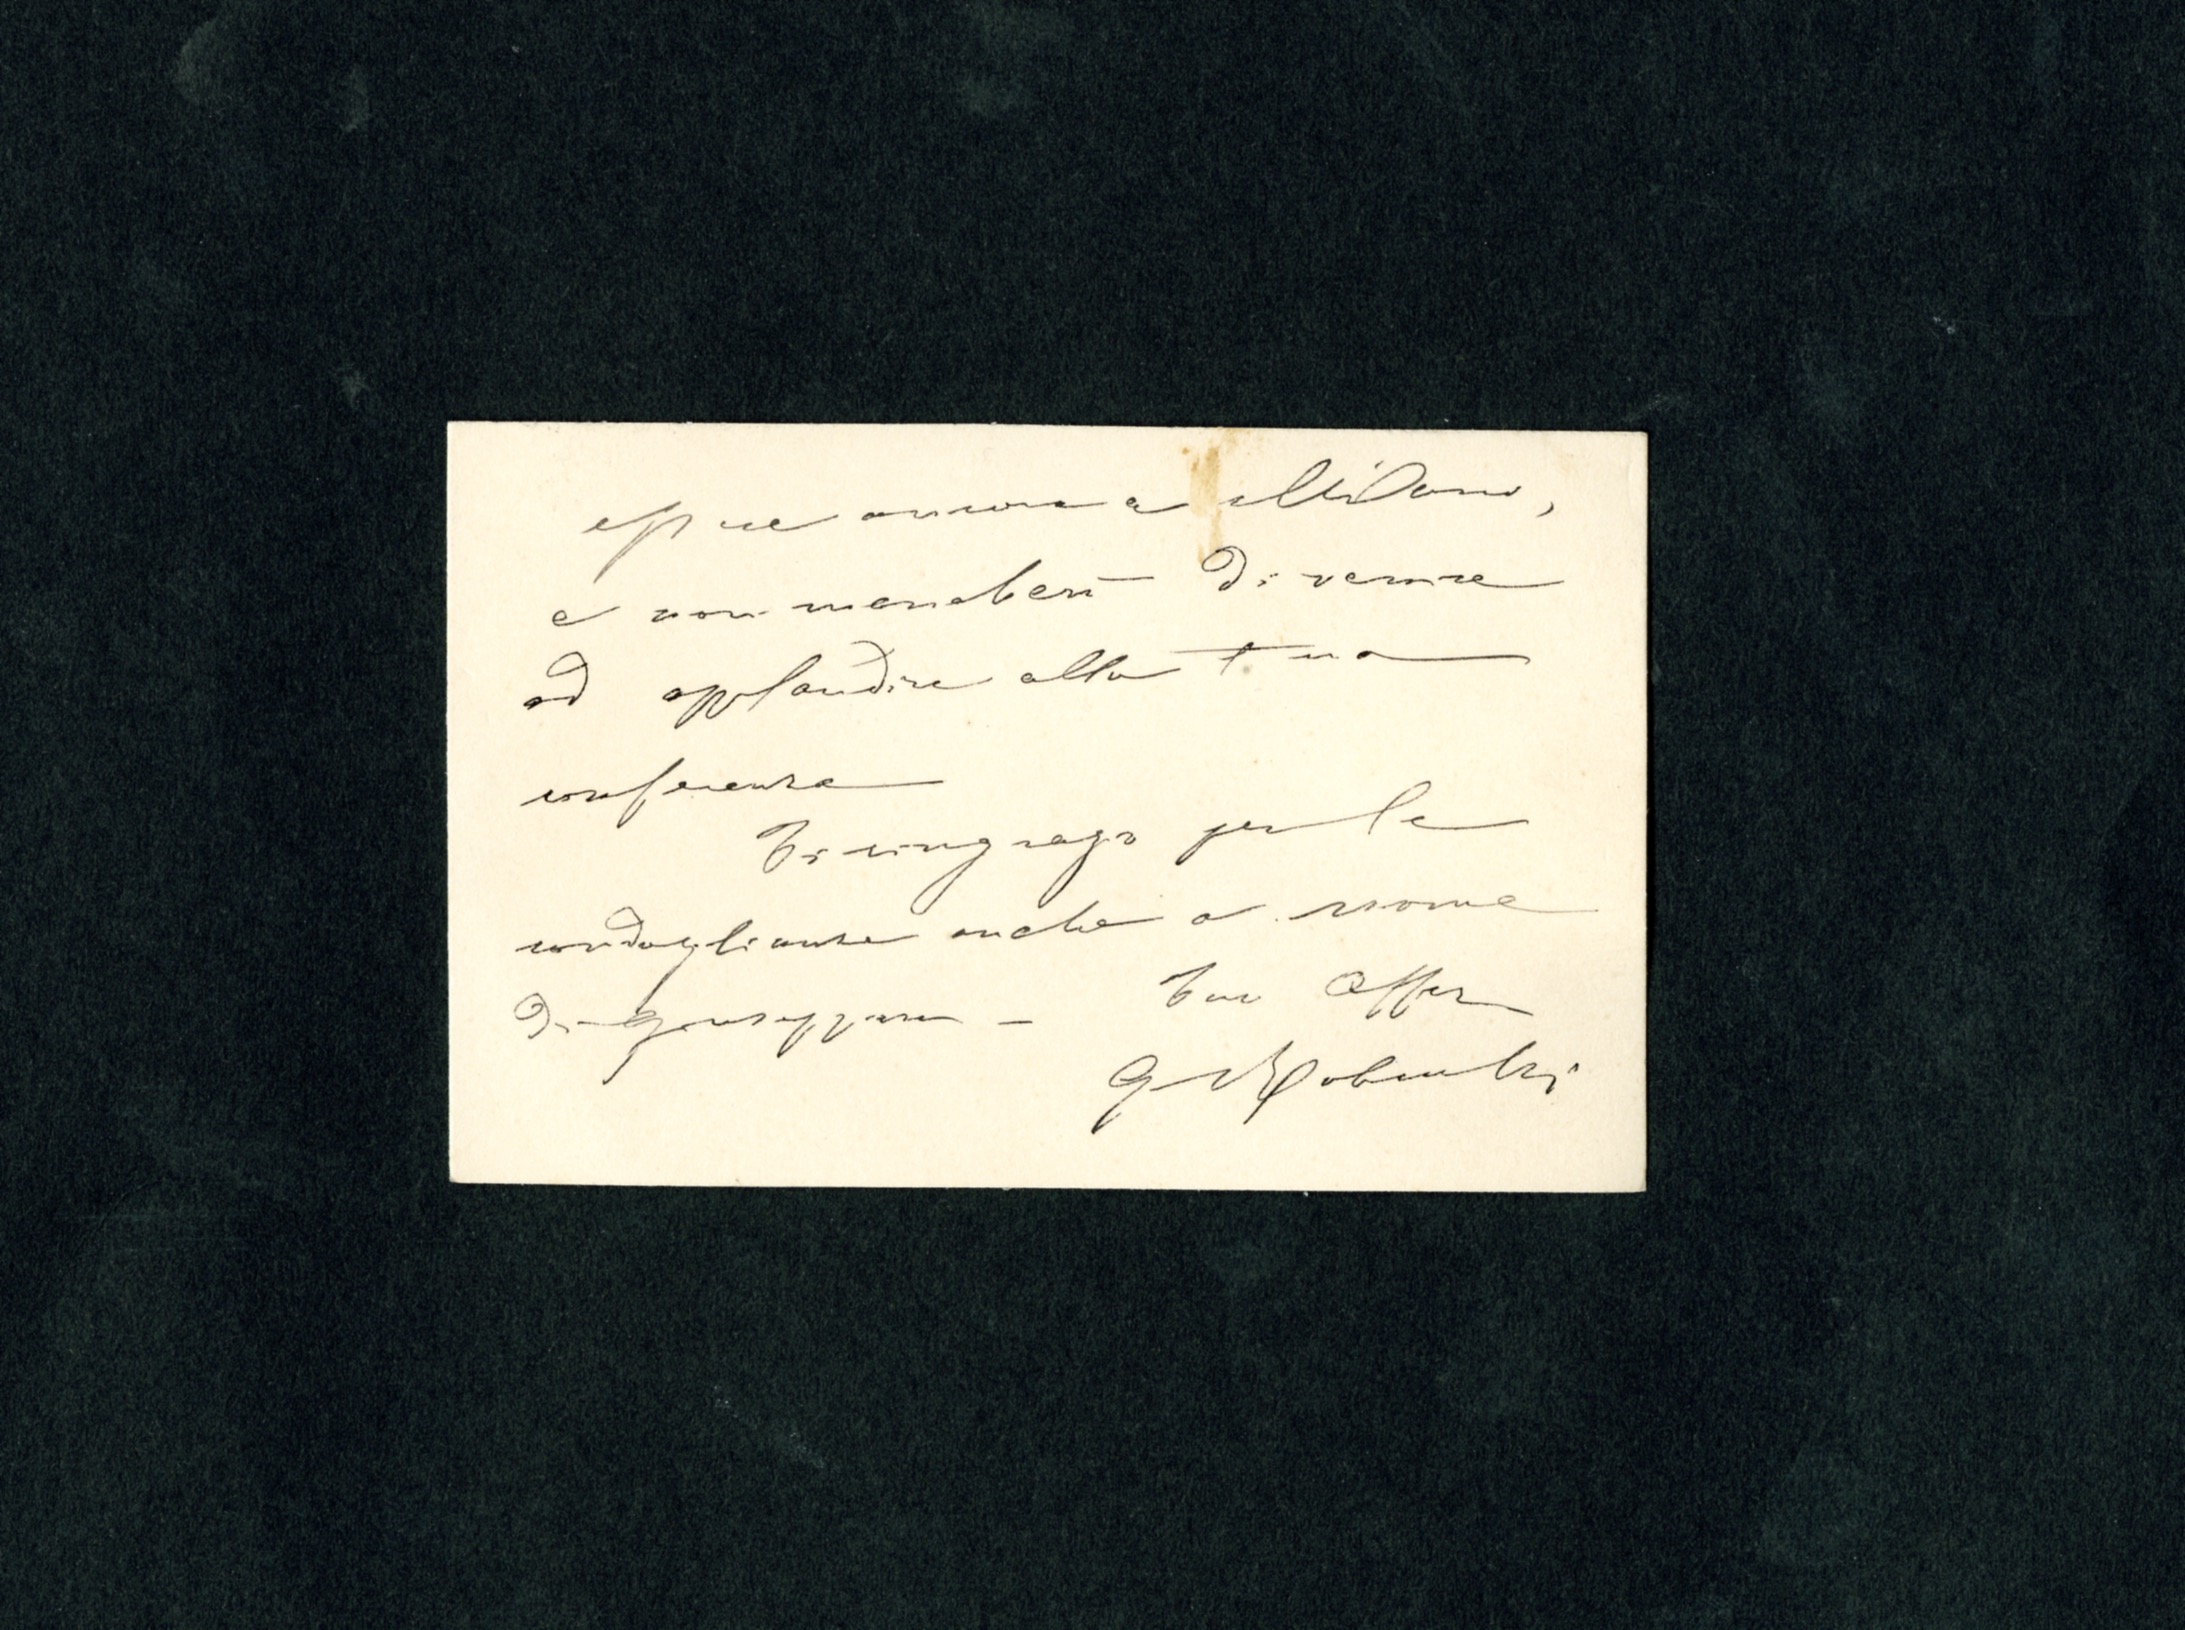 essere ancora a Milano,
e non mancherò di venire
ad applaudire alla tua
conferenza
Ti ringrazio per le
condoglianze anche a nome
di Giuseppina —
tuo Affez
G